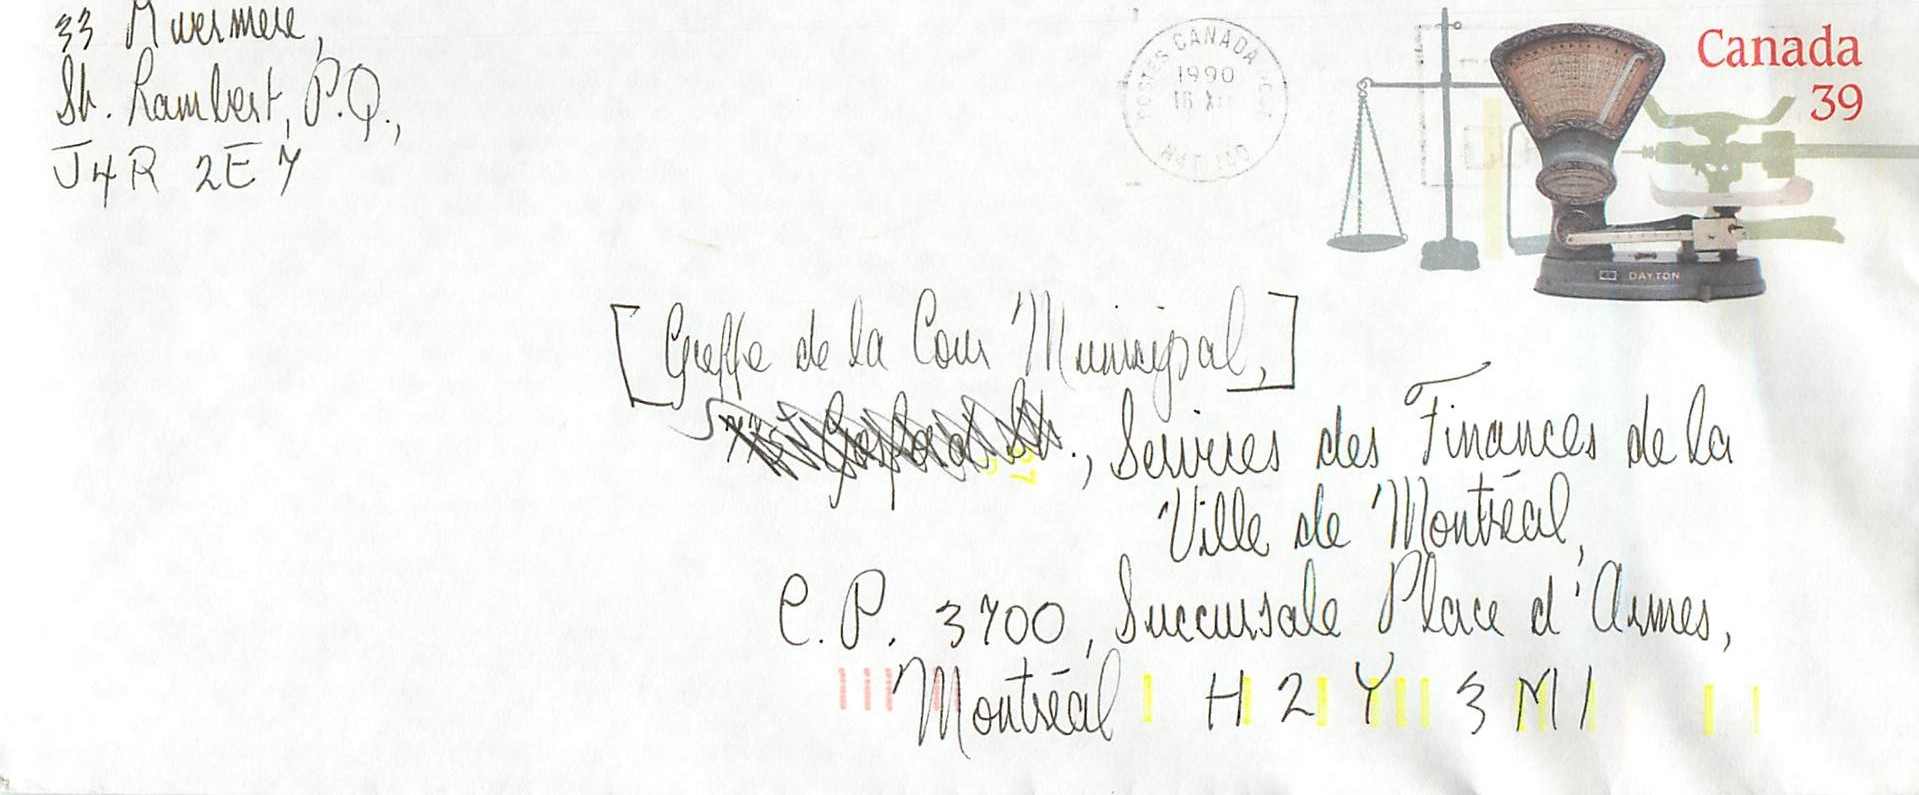 33
St. Lambert, P.Q.,
J4R 2E7
POSTES CANADA
1990
16 XI
H4T 1A0
Canada
39
DAYTON
[Greffe de la Cour Municipal,]
, Services des Finances de la
Ville de Montréal,
C.P. 3700, Succursale Place d'Armes,
Montréal H2Y 3M1